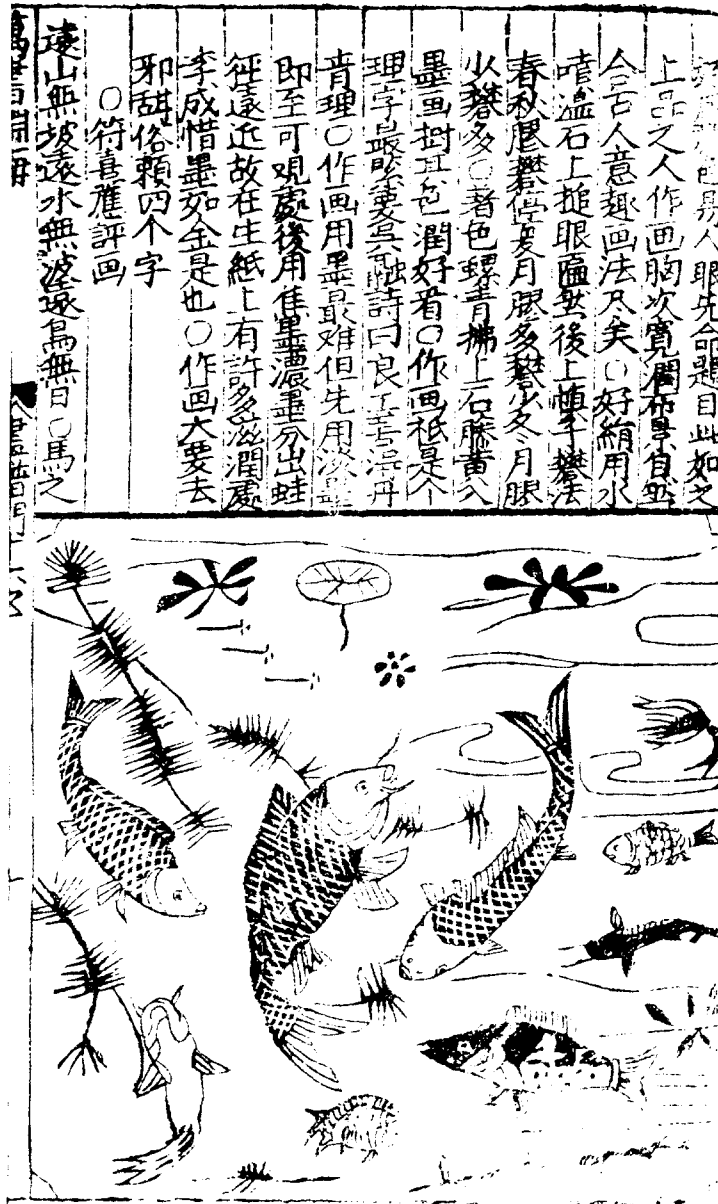 易人眼先命題目此如之
上品之人作画胸次寬濶布景自然
合古人意趣画法尽矣○好絹用水
噴溫石上搥眼匾然後上幀子礬法
春秋膠礬停夏月膠多礬少冬月膠
少礬多○著色螺青拂上石藤黃入
墨画樹甚色潤好看○作画祗是个
理字最緊要吳融詩曰良工善得丹
青理○作画用墨最难但先用淡墨
即至可觀處後用焦墨濃墨分出蛙
徑遠近故在生紙上有許多滋潤處
李成惜墨如金是也○作画大要去
邪甜俗賴四个字
○符嘉應評画
遠山無坡遠水無波遠鳥無目○馬之
萬書淵海
畫譜門十六